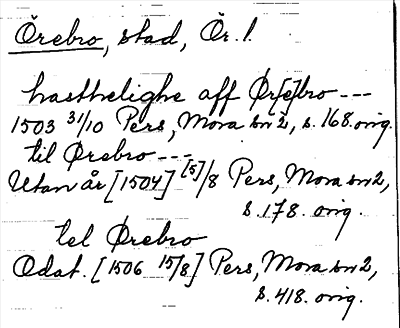 Örebro, stad, Ör. l.
hasthelighe aff Ør[e]bro ---
1503 31/10 Pers, Mora sn 2, s. 168. orig.
til Ørebro ---
Utan år [1504] [5]/8 Pers, Mora sn 2,
s. 178. orig.
tel Ørebro
Odat. [1506 15/8] Pers, Mora sn 2,
s. 418. orig.